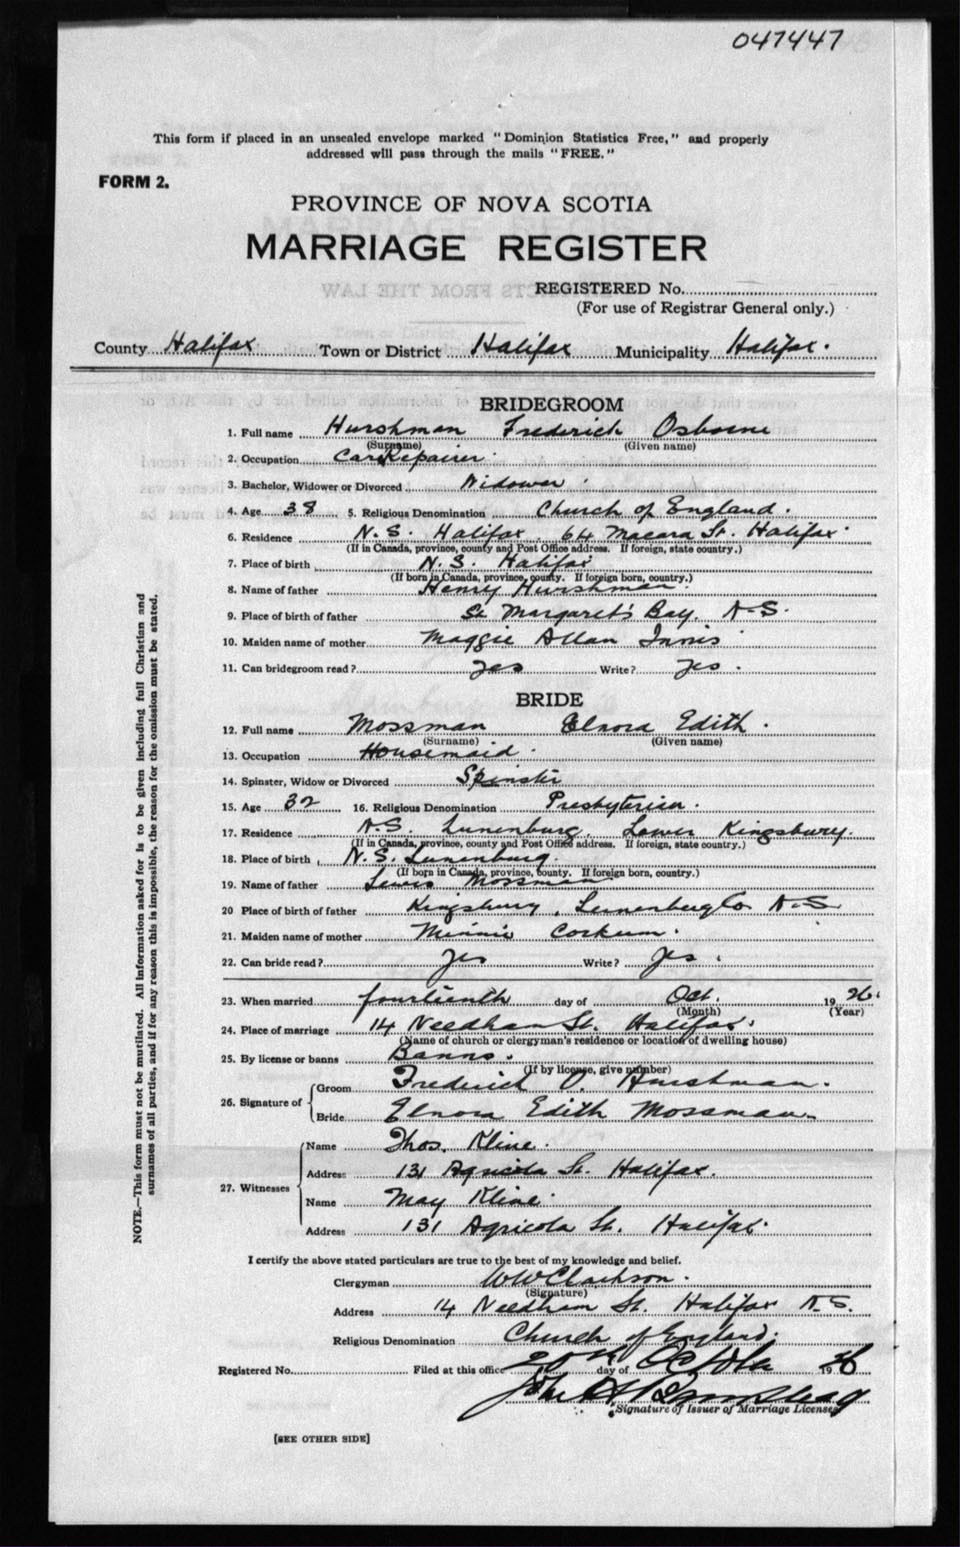 047447
This form if placed in an unsealed envelope marked "Dominion Statistics Free," and properly
addressed will pass through the mails "FREE."
FORM 2.
PROVINCE OF NOVA SCOTIA
MARRIAGE REGISTER
REGISTERED No.
(For use of Registrar General only.)
County Halifax Town or District Halifax Municipality Halifax.
BRIDEGROOM
1. Full name Hurshman Frederick Osborne
(Surname) (Given name)
2. Occupation Car Repairer.
3. Bachelor, Widower or Divorced Widower.
4. Age 38 5. Religious Denomination Church of England.
6. Residence N.S. Halifax, 64 Macara St. Halifax.
(If in Canada, province, county and Post Office address. If foreign, state country.)
7. Place of birth N.S. Halifax
(If born in Canada, province, county. If foreign born, country.)
8. Name of father Henry Hurshman.
9. Place of birth of father St. Margaret's Bay. N.S.
10. Maiden name of mother Maggie Allan Innis
11. Can bridegroom read? Yes Write? Yes.
BRIDE
12. Full name Mossman Elnora Edith.
(Surname) (Given name)
13. Occupation Housemaid.
14. Spinster, Widow or Divorced Spinster
15. Age 32 16. Religious Denomination Presbyterian.
17. Residence N.S. Lunenburg, Lower Kingsbury.
(If in Canada, province, county and Post Office address. If foreign, state country.)
18. Place of birth N.S. Lunenburg.
(If born in Canada, province, county. If foreign born, country.)
19. Name of father Lewis Mossman
20 Place of birth of father Kingsbury, Lunenberg Co. N.S.
21. Maiden name of mother Minnie Corkum.
22. Can bride read? Yes Write? Yes.
23. When married fourteenth day of Oct. 1926.
(Month) (Year)
24. Place of marriage 14 Needham St. Halifax.
(Name of church or clergyman's residence or location of dwelling house)
25. By license or banns Banns.
(If by license, give number)
26. Signature of
Groom Frederick O. Hurshman.
Bride Elnora Edith Mossman
27. Witnesses
Name Thos. Kline.
Address 131 Agricola St. Halifax.
Name May Kline.
Address 131 Agricola St. Halifax.
I certify the above stated particulars are true to the best of my knowledge and belief.
Clergyman W W Clarkson.
(Signature)
Address 14 Needham St. Halifax N.S.
Religious Denomination Church of England.
Registered No. Filed at this office 20th day of 1926
John
Signature of Issuer of Marriage Licenses
[SEE OTHER SIDE]
NOTE.—This form must not be mutilated. All information asked for is to be given including full Christian and
surnames of all parties, and if for any reason this is impossible, the reason for the omission must be stated.